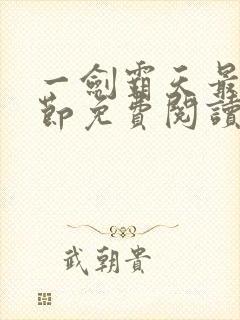 一劍霸天最
節免費閱讀
武朝貴